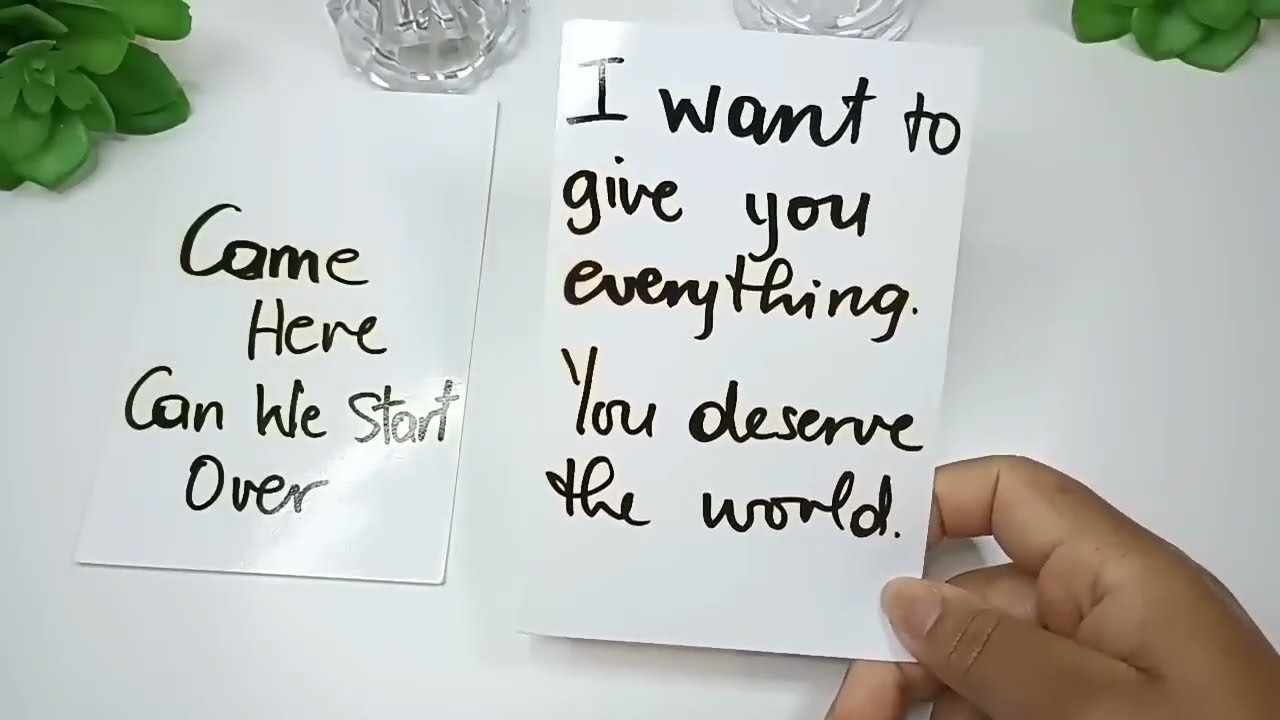 Come
Here
Can We Start
Over
I want to
give you
everything.
You deserve
the world.